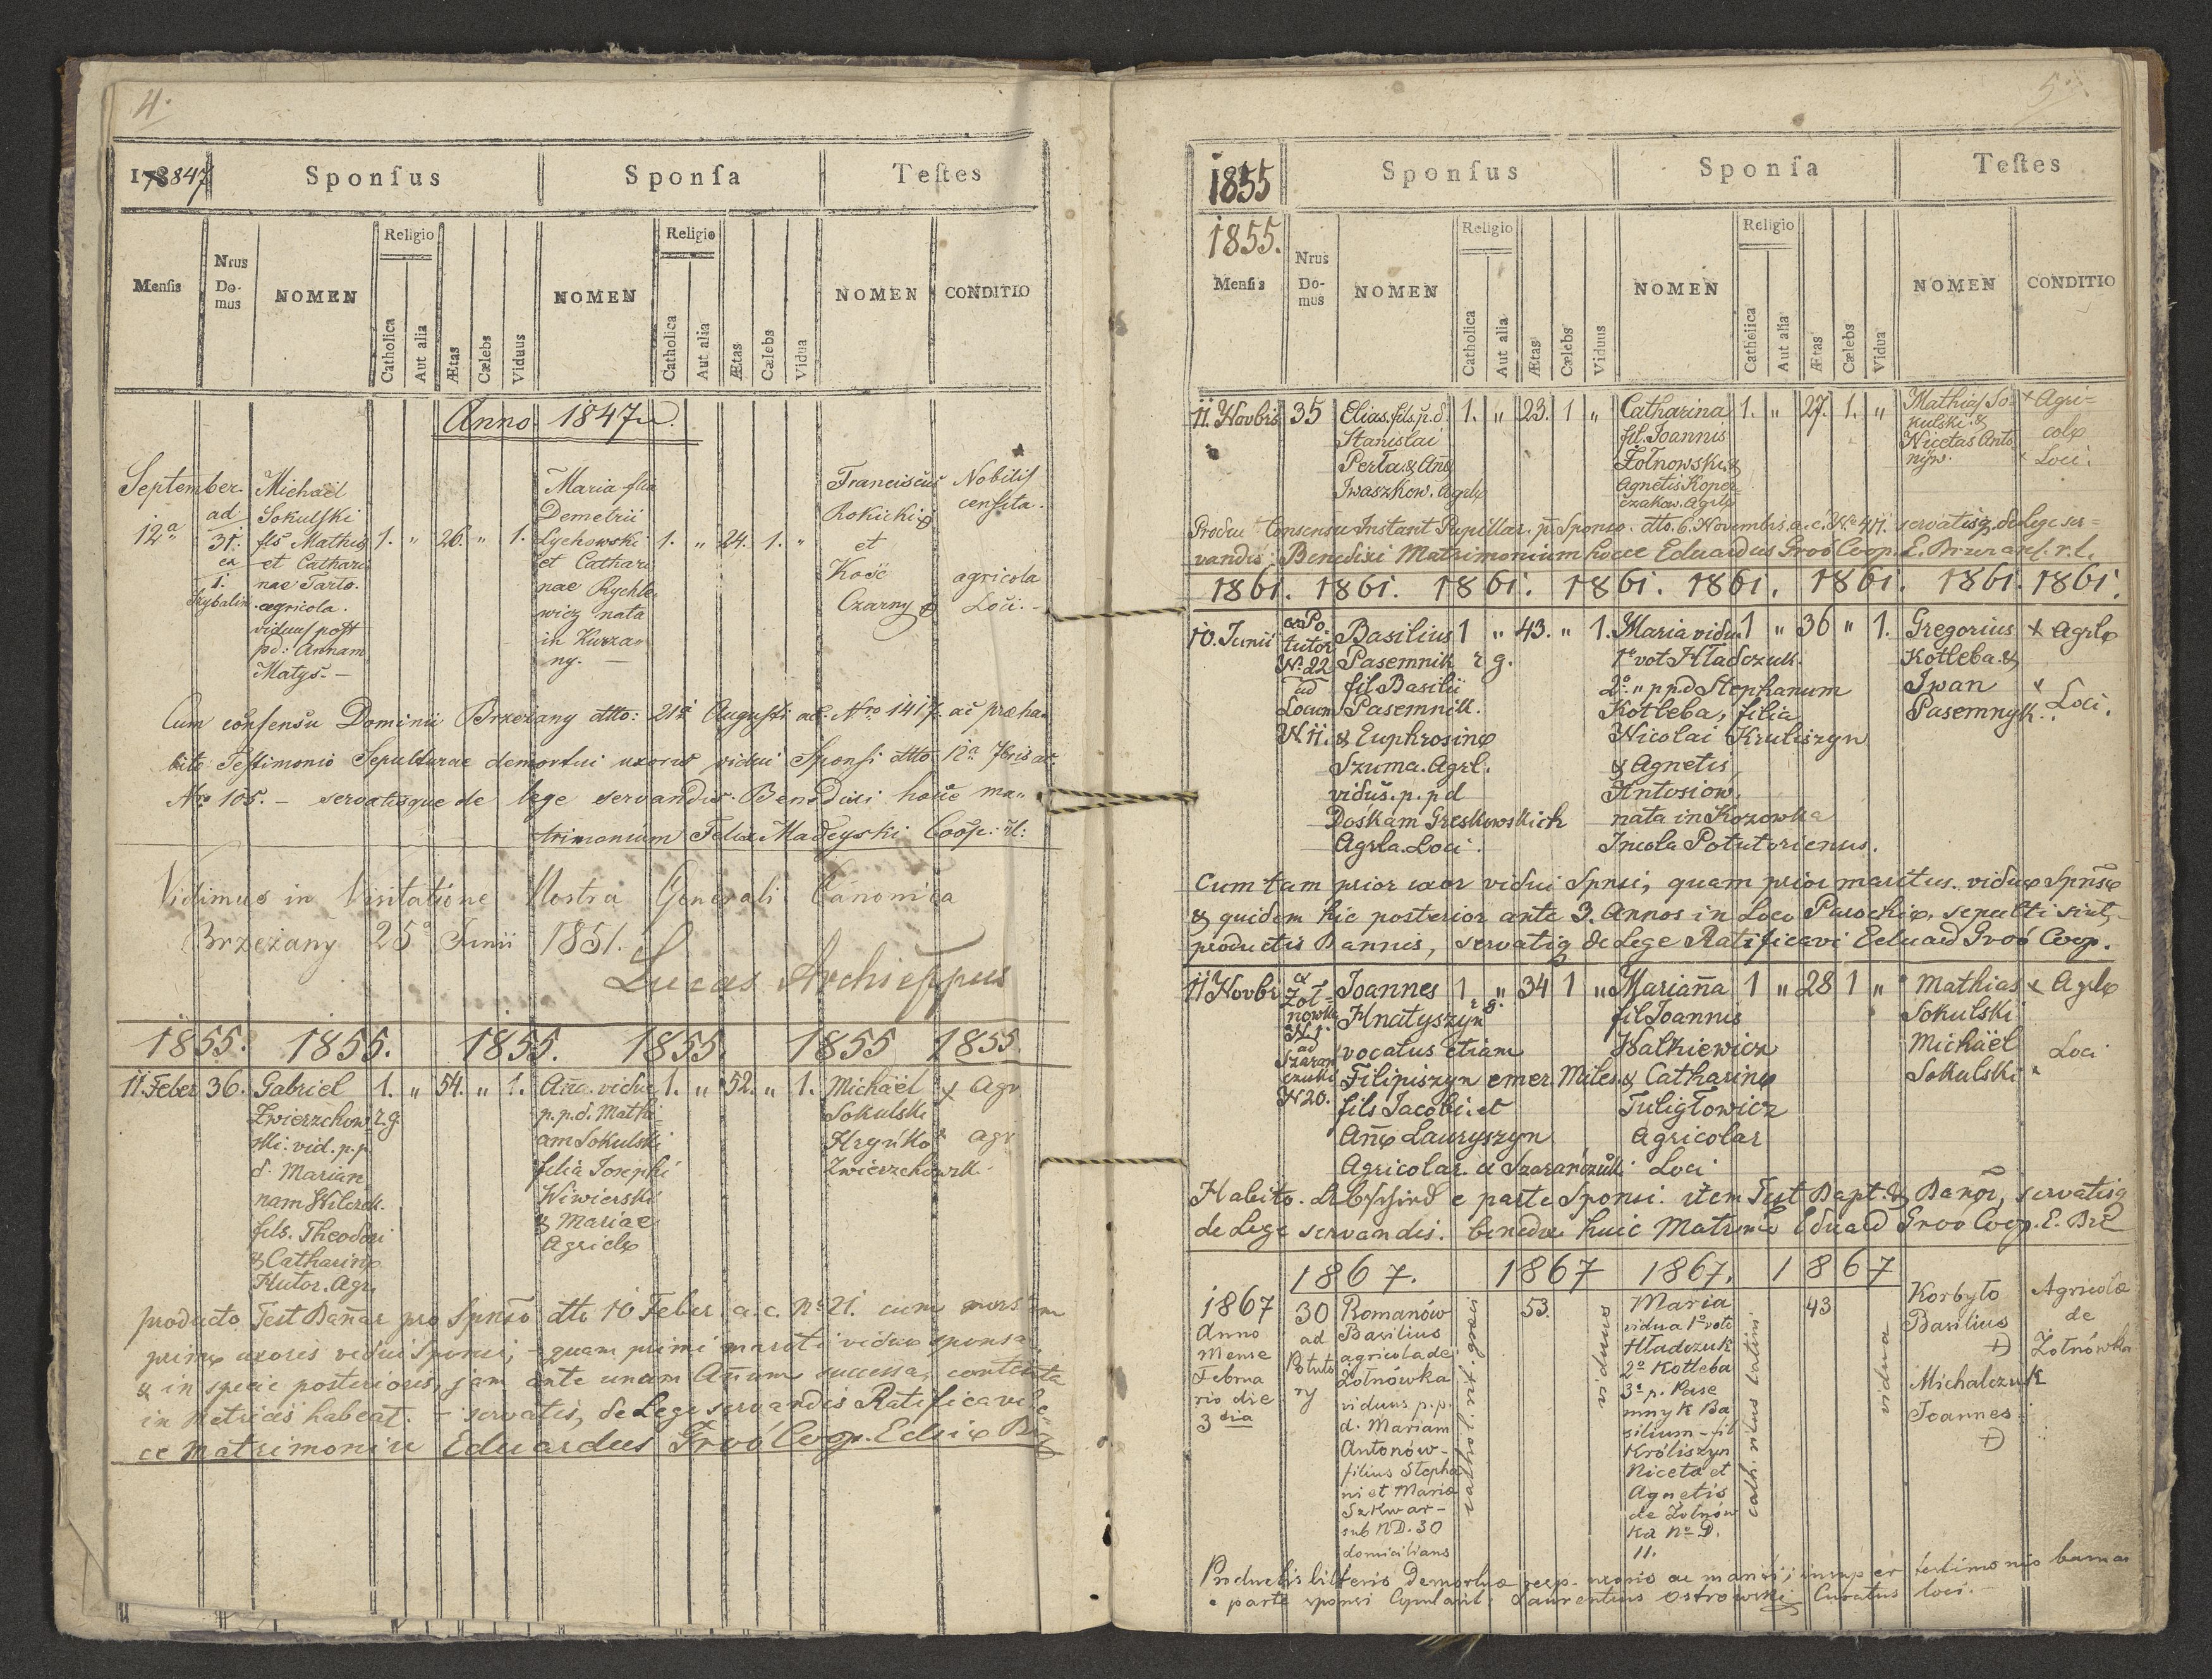 4.
1847
Sponsus
Sponsa
Testes
Mensis
Nrus Do-mus
NOMEN
Religio
Catholica
Aut alia
Ætas
Cælebs
Viduus
NOMEN
Religio
Catholica
Aut alia
Ætas
Cælebs
Vidua
NOMEN
CONDITIO
Anno 1847
September
12ª
ad
31.
ex
1.
Michaël
Sokulski
fils Mathiæ
et Cathari
nae Tarto.
agricola.
viduus post
pd: Annam
Matys.
1. „ 26. „ 1.
Maria filia
Demetrii
Lychowski
et Cathari
nae Rychle
wicz nata
in Kurza-
ny.
1. „ 24. 1. „
Franciscus
Rokicki
et
Kość
Czarny
Nobilis
censita.
agricola
Loci.
Cum consensu Dominii Brzeżany dtto: 21ª Augusti ac. Nro 1417. ac præha-
bito Testimonio Sepulturae demortui uxoris vidui Sponsi dtto 12ª 7bris ac.
Nro 105. – servatisque de lege servandis. Benedixi hocce ma-
trimonium Felix Madeyski Coop: rl:
Vidimus in Visitatione Nostra Generali Canonica
Brzeżany 25ª Junii 1851.
Lucas Archieppus
1855. 1855. 1855. 1855. 1855 1855
11. Feber 36.
Gabriel
Zwierzchow r.g.
ski. vid. p.p.
d. Marian
nam Wilczek.
fils. Theodori
& Catharinæ
Hutor. Agr.
1. „ 54. „ 1.
Aña. vidua
p.p.d. Mathi
am Sokulski
filia Josephi
Wiwierski
& Mariae
Agricolæ
1. „ 52. „ 1.
Michaël
Sokulski
Hryńko
Zwierzchowsk.
Agr
Agr
producto Test Bañar pro Spnso dtto 10 Feber. a. c. No 21. cum mors tam
primæ uxoris vidui Sponsi, quam primi mariti viduæ sponsæ,
& in specie posterioris, jam ante unam Añum successa, contenta
in Metricis habeat. – servatis, de Lege servandis Ratificavi ho
ce Matrimoniu Eduardus Groó Coop. Eccliæ Brz
5.
1855
Sponsus
Sponsa
Testes
1855.
Mensis
Nrus Do-mus
NOMEN
Religio
Catholica
Aut alia
Ætas
Cælebs
Viduus
NOMEN
Religio
Catholica
Aut alia
Ætas
Cælebs
Vidua
NOMEN
CONDITIO
11. Novbris 35
Elias. fils. p. d.
Stanislai
Perta. & Añæ
Iwaszkow. Agrlæ
1. „ 23. 1 „
Catharina
fil. Joannis
Żołnowski. &
Agnetis Koper-
czakow. Agrlæ
1. „ 27. 1. „
Mathias So-
kulski. &
Nicetas Anto
nyw.
Agri-
colæ
Loci.
Produ Consensu Instant Pupillar. p. Sponso. dtto. 6. Novembris. a. c. No 411. servatisq, de Lege ser-
vandis, Benedixi Matrimonium hocce Eduardus Groó Coop. E. Brzezan. r. l.
1861. 1861. 1861. 1861. 1861. 1861. 1861. 1861.
10. Junii
ex Po-
tutor
N. 22
ad
Locum
N. 11.
Basilius
Pasemnik r. g.
fil Basilii
Pasemnik.
& Euphrosinæ
Szuma. Agrl.
viduš. p. p d
Doskam Greskowskich
Agrla. Loci.
1 „ 43. „ 1.
Maria vidua
1º vot Hładczuk.
2º „ p.p.d Stephanum
Kotleba, filia
Nicolai Kruliszyn
& Agnetis
Antosiow.
nata in Kozowka
Incola Potutoriensis.
1 „ 36 „ 1.
Gregorius
Kotleba. &
Iwan
Pasemnyk.
Agrlæ
Loci.
Cum tam prior uxor vidui Spnsi, quam prior maritus. viduæ Spnsæ
& quidem hic posterior ante 3. Annos in Loco Parochiæ, sepulti sint,
productis Bannis, servatiq de Lege Ratificavi Eduard Groó Coop.
11 Novbr
ex
Żoł-
nowka
N 1.
ad
Szaran
czuki
N 20.
Joannes
Hnatyszyn r. g.
vocatus etiam
Filipiszyn emer. Miles.
fils Jacobi. et
Añæ Lauryszyn
Agricolar. a Szarańczuk.
1 „ 34 1 „
Mariaña
fil Joannis
Walkiewicz
& Catharinæ
Tuligłowicz
Agricolar
Loci
1 „ 28 1 „
Mathias
Sokulski
Michäel
Sokulski
Agrlæ
Loci
Habito. Abschied e parte Sponsi. item Test Bapt. & Banor, servatisq
de Lege servandis. benedixi huic Matrimo Eduard Groó Coop. E. Brz
1867. 1867 1867. 1867
1867
Anno
Mense
Februa
rio die
3 tia
30
ad
Potuto
ry
Romanów
Basilius
agricola de
Żołnówka
viduus p.p.
d. Mariam
Antonów-
filius Stepha
ni et Maria
Szkwar-
sub ND. 30
domicilians
cathol. rit. graeci
53.
viduus
Maria
vidua 1º voto
Hładczuk
2º Kotleba
3º p. Pase
mnyk Ba
silium – fil
Króliszyn
Niceta et
Agnetis
de Żołnów
ka Nº D.
11.
cath. ritus latini
43
vidua
Korbyło
Basilius
+)
Michalczuk
Joannes
+)
Agricolæ
de
Żołnówka
Productis litteris demortuæ resp. uxoris ac mariti; insuper testimonio bannor
e parte sponsi Copulavit. Laurentius Ostrowski Curatus loci.